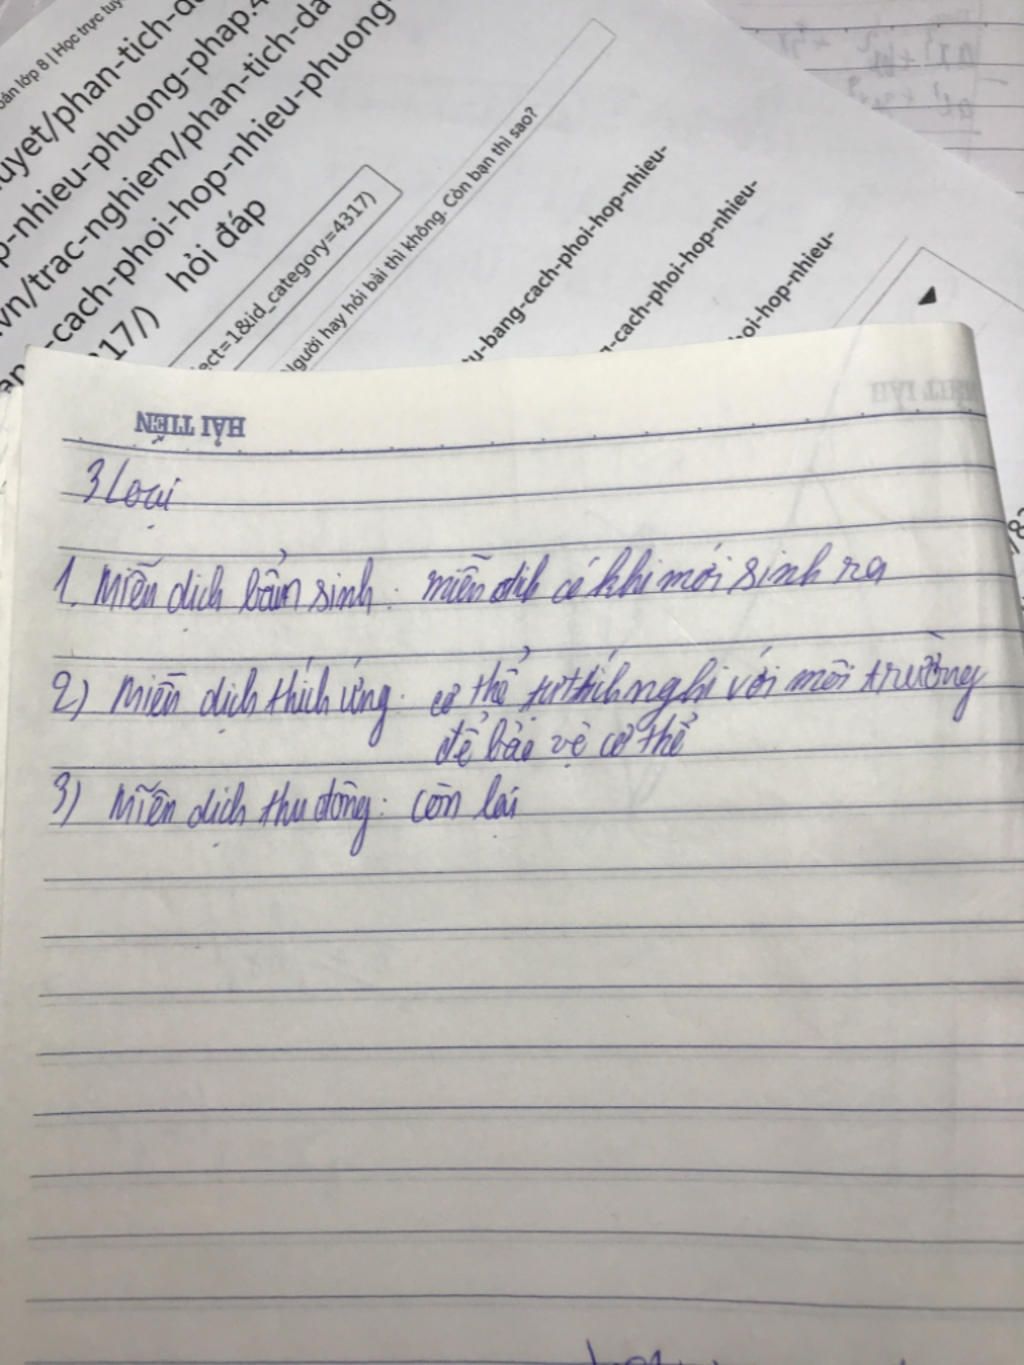 oán lớp 8 | Học trực tuy
uyet/phan-tich-d
p-nhieu-phuong-phap.
vn/trac-nghiem/phan-tich-da
-cach-phoi-hop-nhieu-phuong-
317/)
hỏi đáp
ect=1&id_category=4317)
Người hay hỏi bài thì không. Còn bạn thì sao?
u-bang-cach-phoi-hop-nhieu-
g-cach-phoi-hop-nhieu-
hoi-hop-nhieu-
HẢI TIẾN
3 Loại
1. Miễn dịch bẩm sinh: miễn dịch có khi mới sinh ra
2) Miễn dịch thích ứng: cơ thể tự thích nghi với môi trường
để bảo vệ cơ thể
3) Miễn dịch thụ động: còn lại